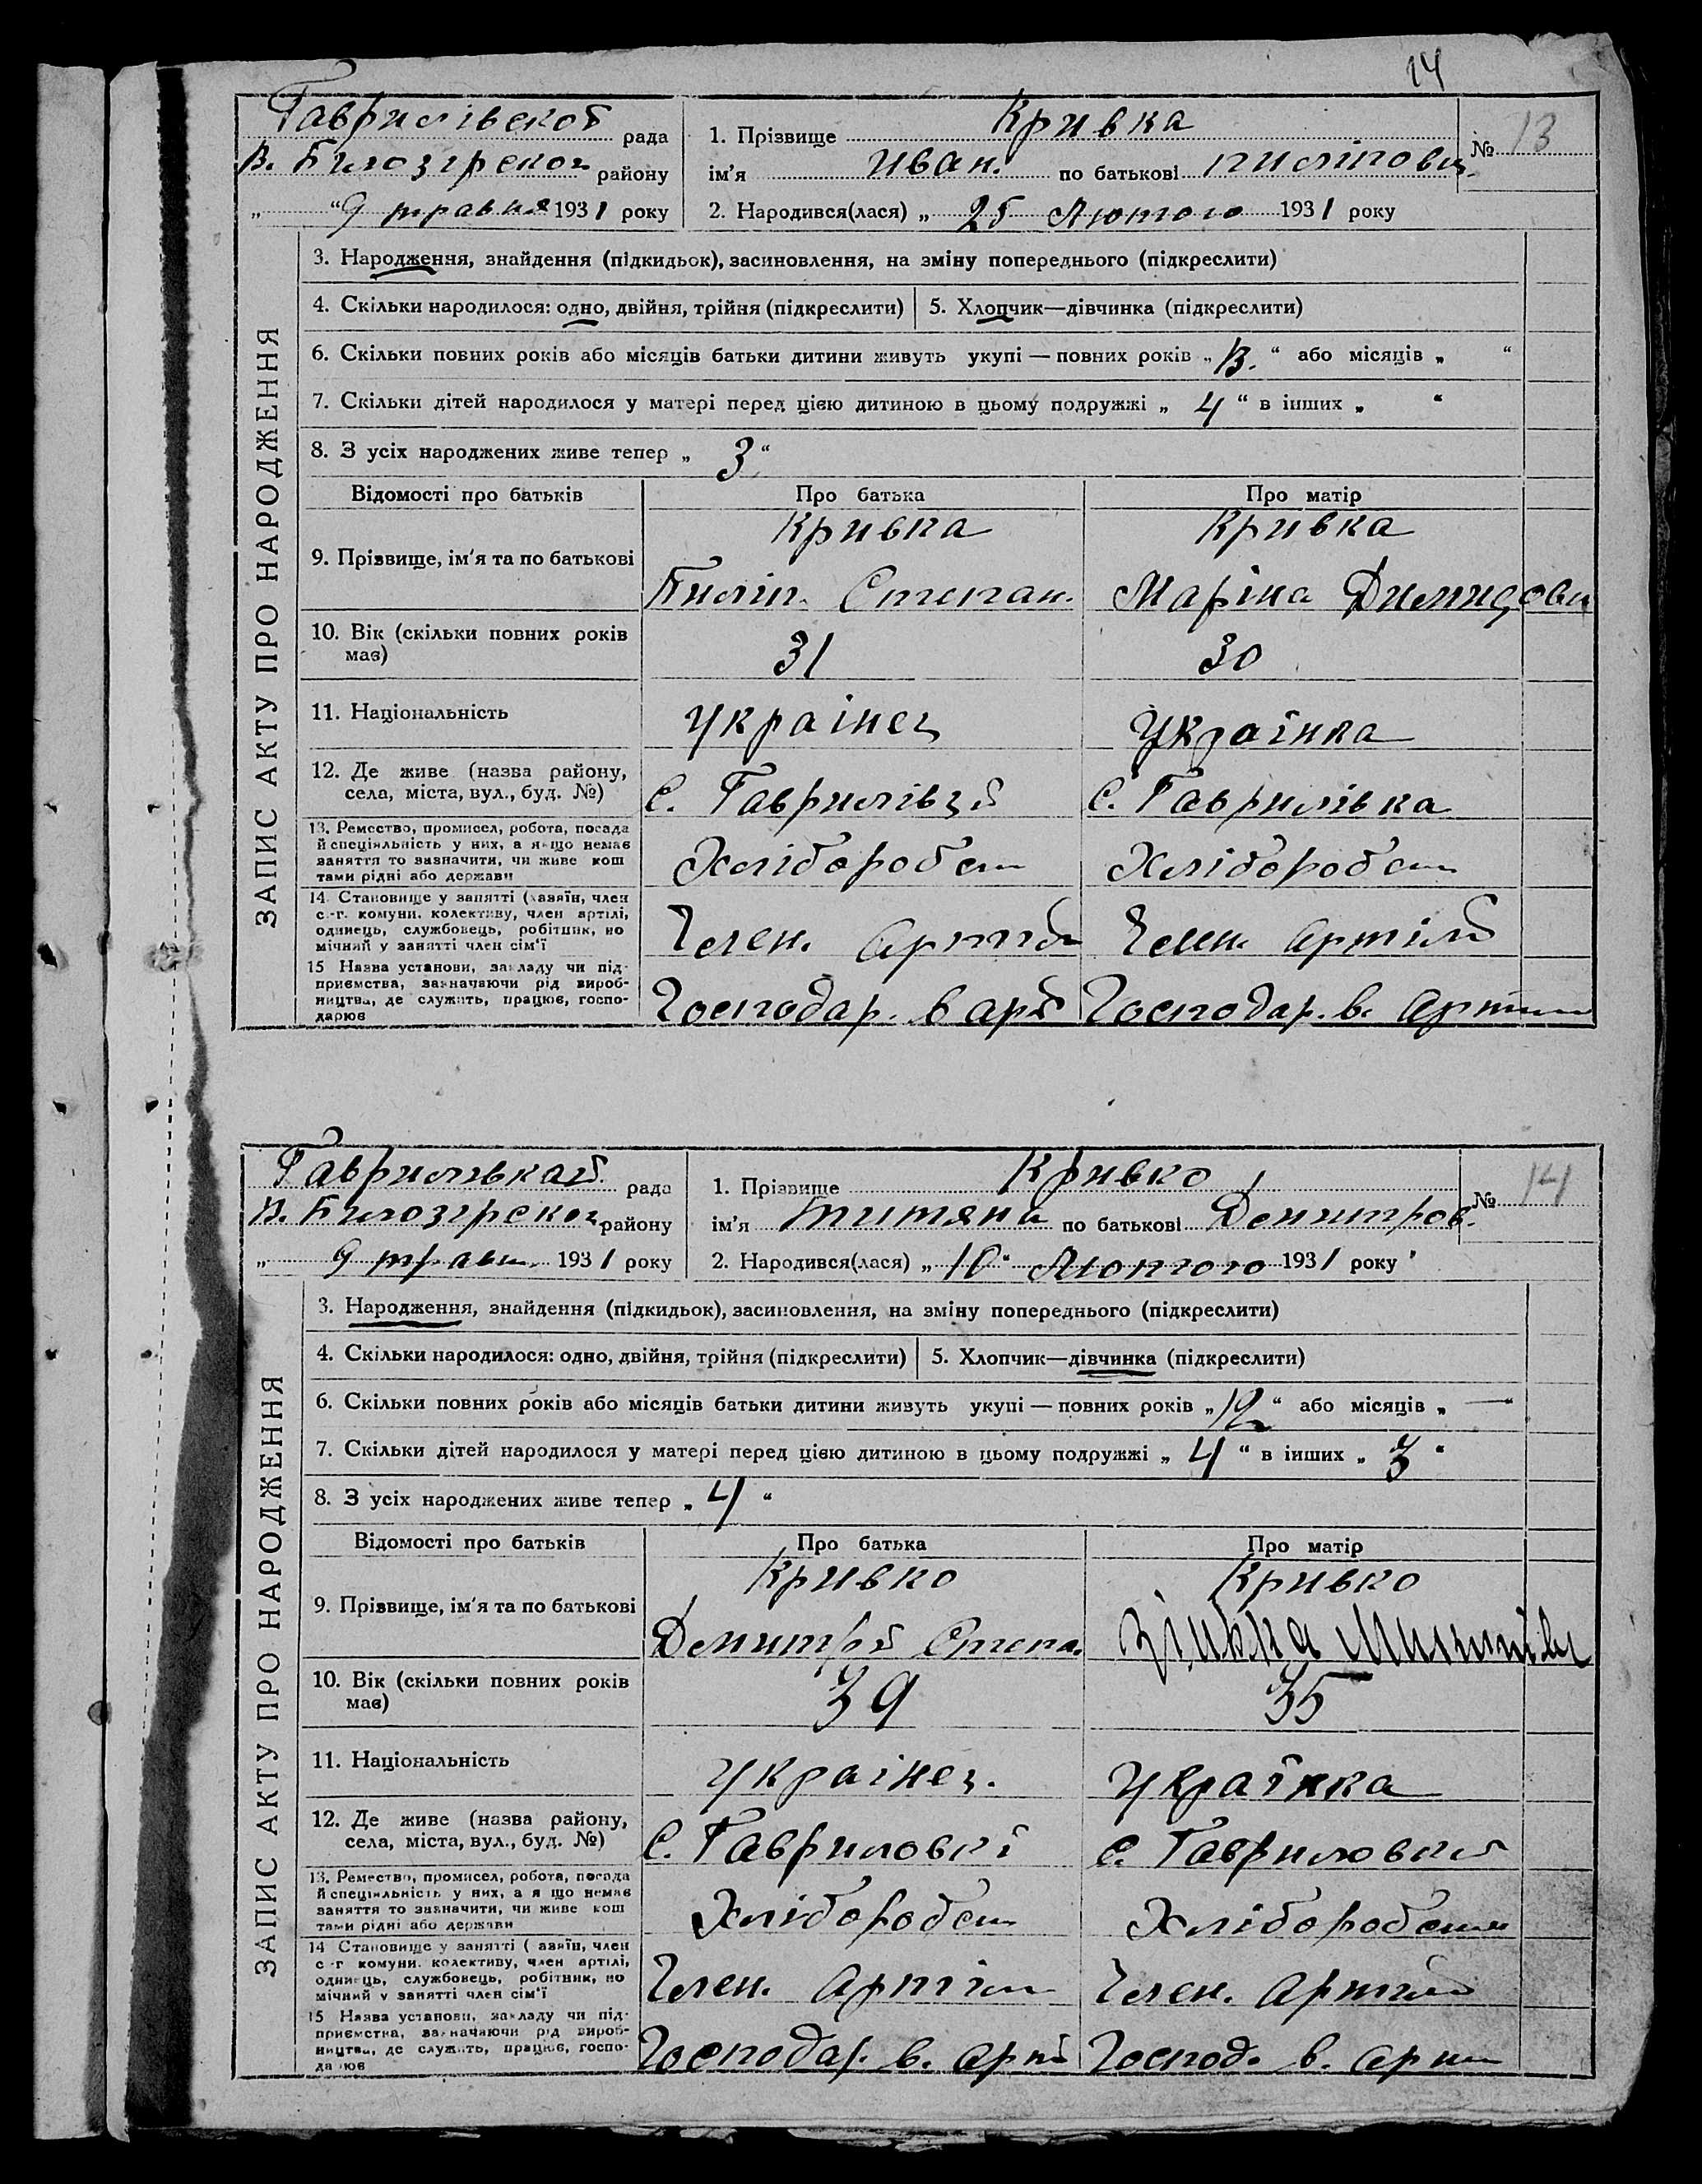 14
Гаврилівскої рада
В. Білозірског району
„ “ 9 травня 1931 року
1. Прізвище Кривка
ім'я Иван. по батькові пилігтови
2. Народився(лася) „ 25 Лютого 1931 року
№ 13
ЗАПИС АКТУ ПРО НАРОДЖЕННЯ
3. Народження, знайдення (підкидьок), засиновлення, на зміну попереднього (підкреслити)
4. Скільки народилося: одно, двійня, трійня (підкреслити)
5. Хлопчик—дівчинка (підкреслити)
6. Скільки повних років або місяців батьки дитини живуть укупі — повних років „ 13. “ або місяців „ “
7. Скільки дітей народилося у матері перед цією дитиною в цьому подружжі „ 4 “ в інших „ “
8. З усіх народжених живе тепер „ 3 “
Відомості про батьків Про батька Про матір
9. Прізвище, ім'я та по батькові
Кривка
Пиліп. Степан.
Кривка
Маріна Димидови
10. Вік (скільки повних років
має)
31
30
11. Національність
Українец
Українка
12. Де живе (назва району,
села, міста, вул., буд. №)
С. Гаврилівці
С. Гаврилівка
13. Ремество, промисел, робота, посада
й спеціяльність у них, а якщо немає
заняття то зазначити, чи живе кош
тами рідні або держави
Хлібороб
Хлібороб
14. Становище у занятті (хазяїн, член
с.-г. комуни, колективу, член артілі,
одинець, службовець, робітник, по
мічний у занятті член сім'ї
Член. Артіл
Член. Артілі
15 Назва установи, закладу чи під-
приємства, зазначаючи рід вироб-
ництва, де служить, працює, госпо-
дарює
Господар. в арт
Господар. в. Артіл
Гаврилівкаї рада
В. Білозірског району
„ 9 травн. 1931 року
1. Прізвище Кривко
ім'я Титяна по батькові Демитров.
2. Народився(лася) „ 10 “ Лютого 1931 року
№ 14
ЗАПИС АКТУ ПРО НАРОДЖЕННЯ
3. Народження, знайдення (підкидьок), засиновлення, на зміну попереднього (підкреслити)
4. Скільки народилося: одно, двійня, трійня (підкреслити)
5. Хлопчик—дівчинка (підкреслити)
6. Скільки повних років або місяців батьки дитини живуть укупі — повних років „ 12 “ або місяців „ — “
7. Скільки дітей народилося у матері перед цією дитиною в цьому подружжі „ 4 “ в інших „ 3 “
8. З усіх народжених живе тепер „ 4 “
Відомості про батьків Про батька Про матір
9. Прізвище, ім'я та по батькові
Кривко
Демитрй Степа.
Кривко
10. Вік (скільки повних років
має)
39
35
11. Національність
Українец.
Українка
12. Де живе (назва району,
села, міста, вул., буд. №)
С. Гавриловкі
С. Гавриловкій
13. Ремество, промисел, робота, посада
й спеціяльність у них, а якщо немає
заняття то зазначити, чи живе кош
тами рідні або держави
Хлібороб
Хлібороб
14 Становище у занятті (хазяїн, член
с.-г. комуни, колективу, член артілі,
одинець, службовець, робітник, по
мічний у занятті член сім'ї
Член. Артіл
Член. Артіл
15 Назва установи, закладу чи під-
приємства, зазначаючи рід вироб-
ництва, де служить, працює, госпо-
дарює
Господар. в. арт
Господ. в. арти